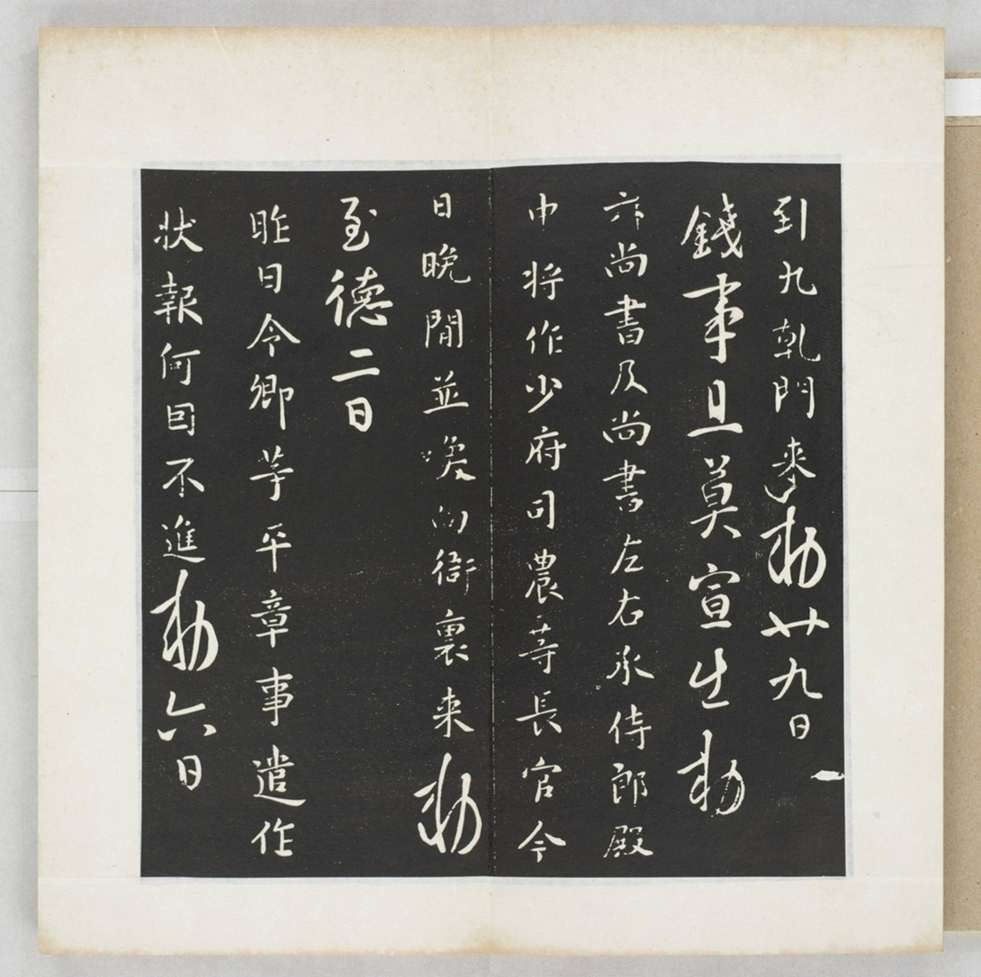 到九乾門来勅廿九日
錢事且莫宣生勅
六尚書及尚書左右丞侍郎殿
中将作少府司農等長官今
日晚間並喚向衙裏来勅
至德二日
昨日令卿等平章事遣作
状報何因不進勅六日